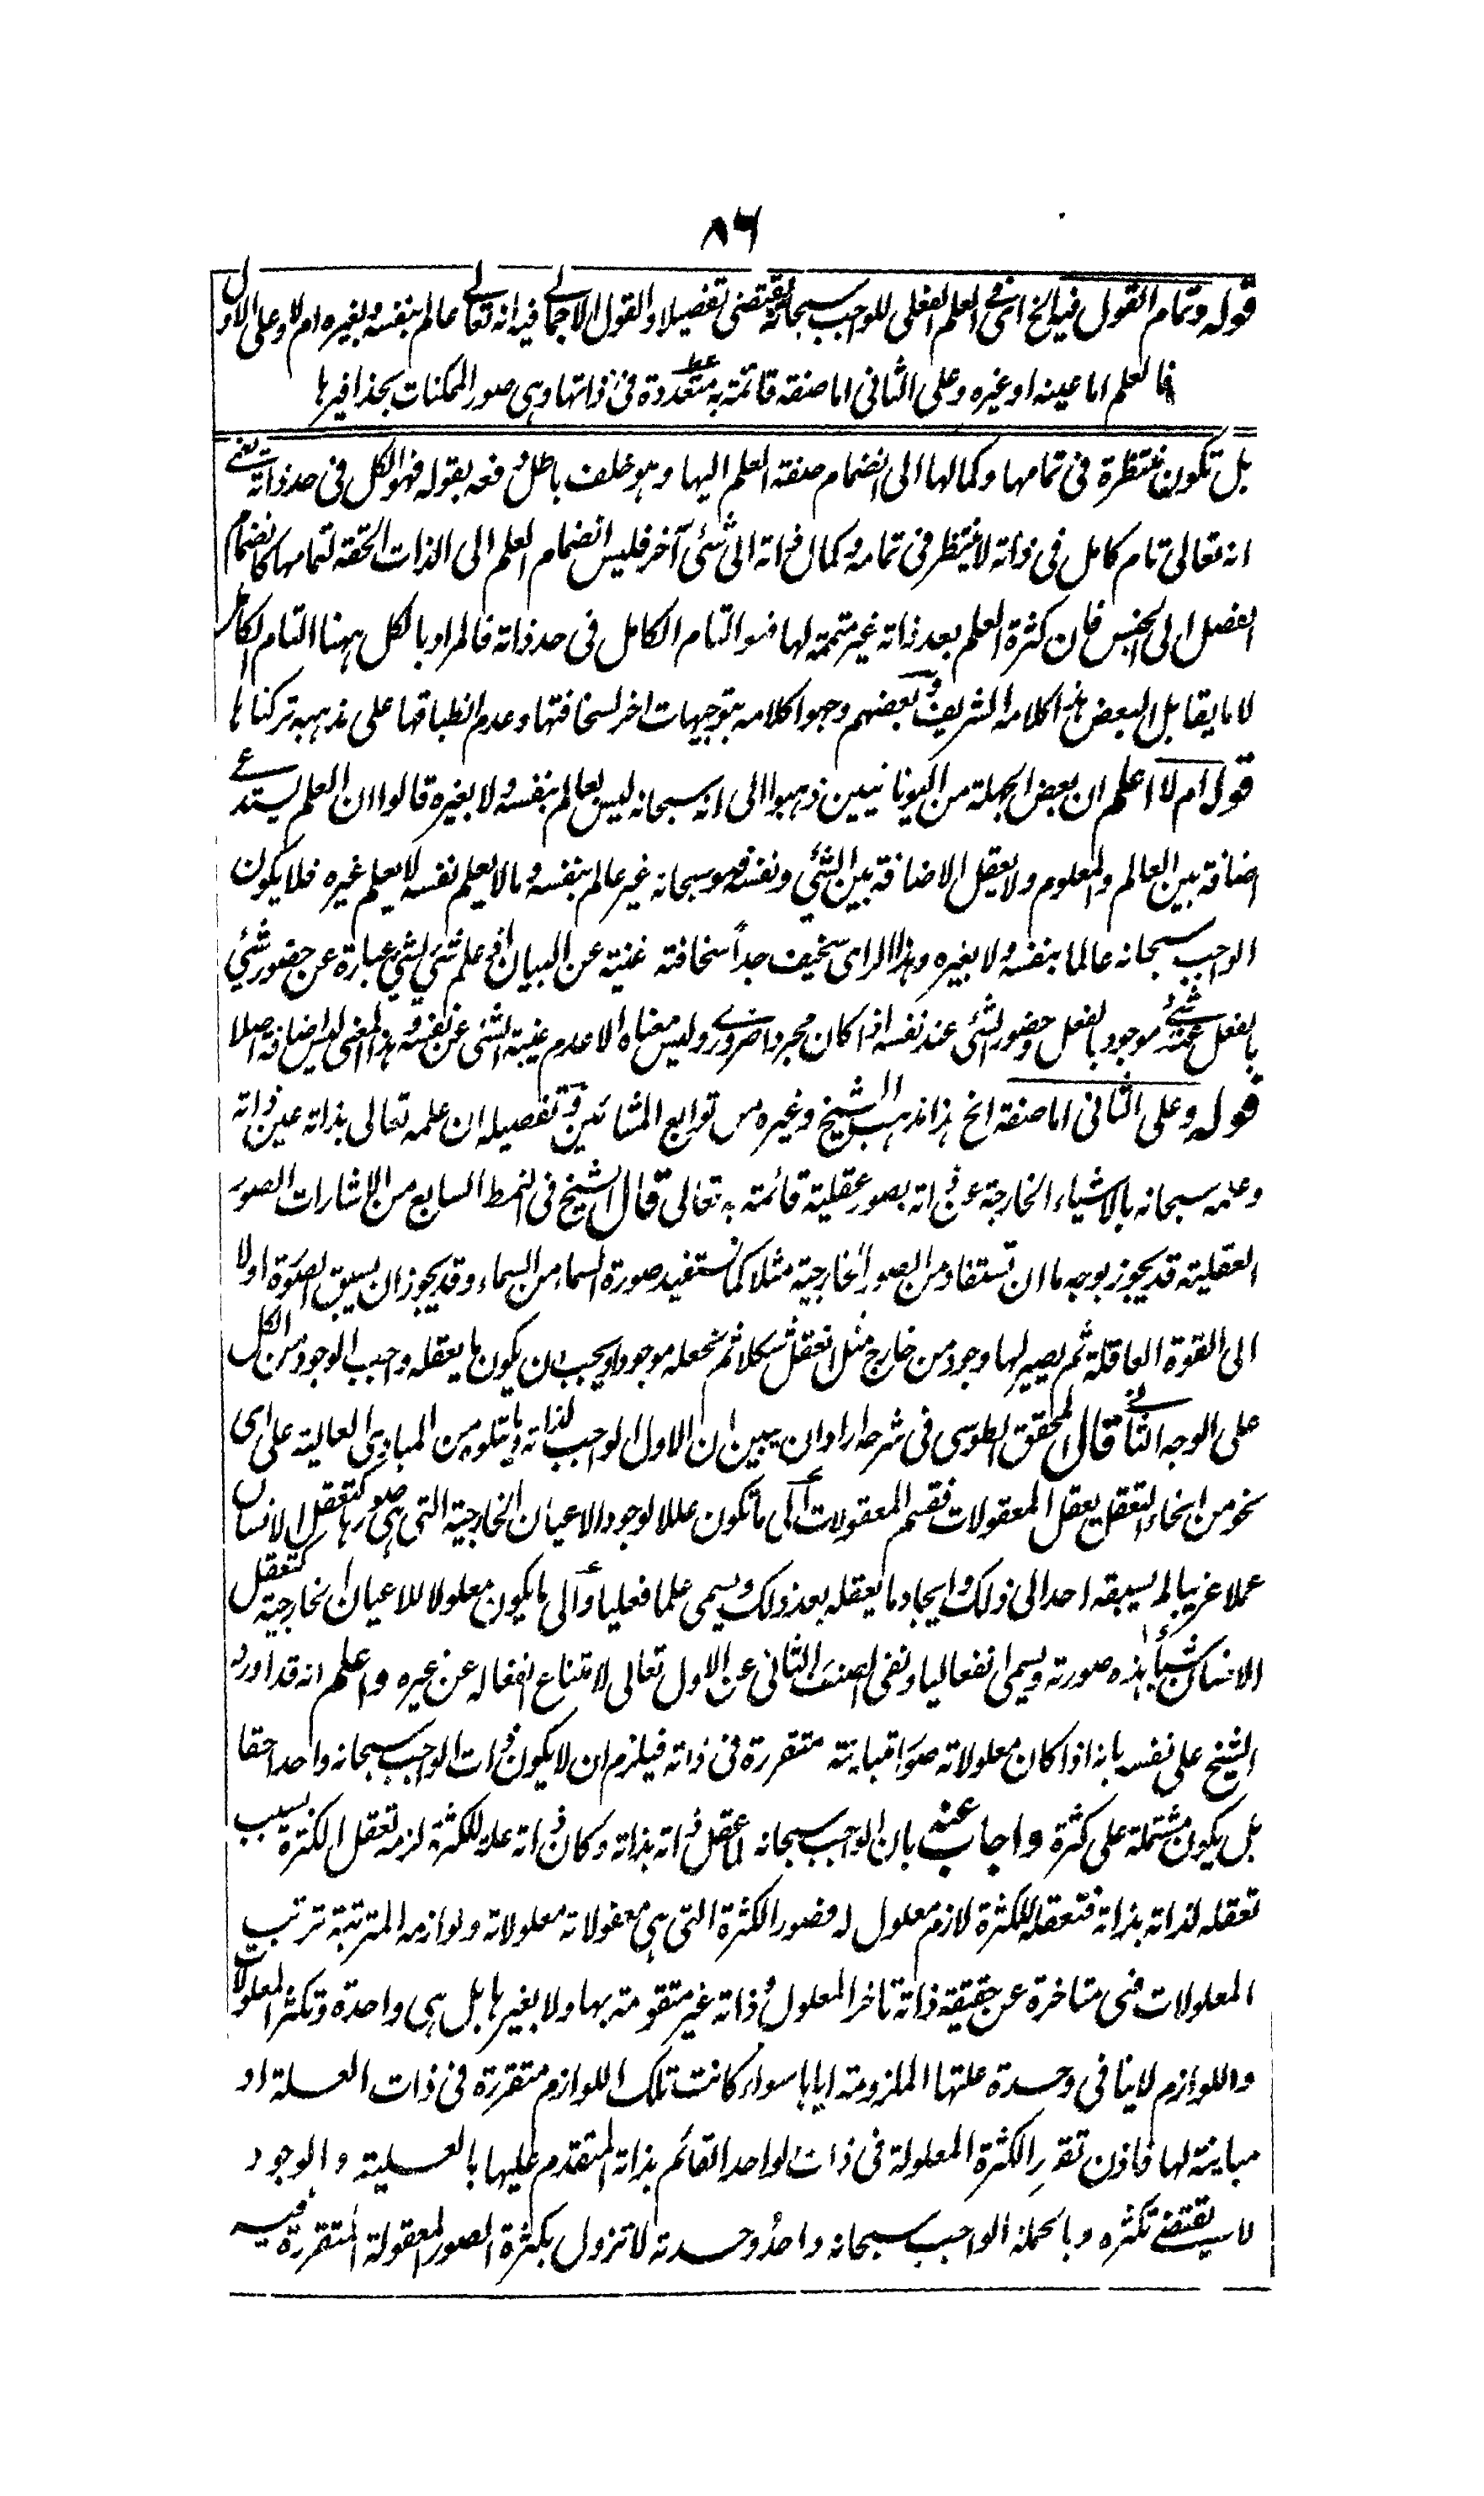 ۸۶
قوله وتمام القول فيه الخ اى فى العلم الفعلى للواجب سبحانه يقتضى تفصيلا والقول الاجمالى فيه انه تعالى عالم بنفسه وبغيره ام لا وعلى الاول
فالعلم اما عينه او غيره وعلى الثانى اما صفة قائمة به متعددة فى ذاتها وهى صور الممكنات بحذافيرها
بل تكون منتظرة فى تمامها وكمالها الى انضمام صفة العلم اليها وهو خلف باطل دفعه بقوله فهو الكل فى حد ذاته يعنى
انه تعالى تام كامل فى ذاته لا ينتظر فى تمامه وكمال ذاته الى شئ آخر فليس انضمام العلم الى الذات الحقة لتمامها كانضمام
الفصل الى الجنس فان كثرة العلم بعد ذاته غير متممة لها فهو التام الكامل فى حد ذاته فالمراد بالكل ههنا التام الكامل
لا ما يقابل البعض هذا كلامه الشريف وبعضهم وجهوا كلامه بتوجيهات اخر لسخافتها وعدم انطباقها على مذهبه تركناها
قوله ام لا اعلم ان بعض الجهلة من اليونانيين ذهبوا الى انه سبحانه ليس بعالم بنفسه ولا بغيره قالوا ان العلم يستدعى
اضافة بين العالم والمعلوم ولا يعقل الاضافة بين الشئ ونفسه فهو سبحانه غير عالم بنفسه وما لا يعلم نفسه لا يعلم غيره فلا يكون
الواجب سبحانه عالما بنفسه ولا بغيره وهذا الراى سخيف جداً سخافته غنية عن البيان اذ علم شئ لشئ عبارة عن حضور شئ
بالفعل عند شئ موجود بالفعل وحضور الشئ عند نفسه اذا كان مجردا ضرورى وليس معناه الا عدم غيبة الشئ عن نفسه وهذا المعنى ليس اضافة اصلا
قوله وعلى الثانى اما صفة الخ هذا مذهب الشيخ وغيره من توابع المشائين وتفصيله ان علمه تعالى بذاته عين ذاته
وعلمه سبحانه بالاشياء الخارجة عن ذاته بصور عقلية قائمة به تعالى قال الشيخ فى النمط السابع من الاشارات الصور
العقلية قد يجوز بوجه ما ان تستفاد من الصور الخارجية مثلا كما نستفيد صورة السماء من السماء وقد يجوز ان يسبق الصورة اولا
الى القوة العاقلة ثم يصير لها وجود من خارج مثل ما نعقل شكلا ثم نجعله موجودا ويجب ان يكون ما يعقله واجب الوجود من الكل
على الوجه الثانى قال المحقق الطوسى فى شرحه اراد ان يبين ان الاول الواجب لذاته وما يتلوه من المبادى العالية على اى
نحو من انحاء التعقل يعقل المعقولات فقسم المعقولات الى ما تكون عللا لوجود الاعيان الخارجية التى هى صورها كتعقل الانسان
عملا غريبا لم يسبقه احد الى ذلك وايجاد ما يعقله بعد ذلك ويسمى علما فعليا والى ما يكون معلولا للاعيان الخارجية كتعقل
الانسان شيأ هذه صورته ويسمى انفعاليا ونفى الصنف الثانى عن الاول تعالى لامتناع انفعاله عن غيره واعلم انه قد اورد
الشيخ على نفسه بانه اذا كان معلولاته صورا متباينة متقررة فى ذاته فيلزم ان لا يكون ذات الواجب سبحانه واحدا حقا
بل يكون مشتملة على كثرة واجاب عنه بان الواجب سبحانه لما عقل ذاته بذاته وكان ذاته علة للكثرة لزمه تعقل الكثرة بسبب
تعقله لذاته بذاته فتعقله للكثرة لازم معلول له فصور الكثرة التى هى معقولاته معلولاته ولوازمه المترتبة ترتب
المعلولات فهى متاخرة عن حقيقة ذاته تاخر المعلول وذاته غير متقومة بها ولا بغيرها بل هى واحدة وتكثر المعلولات
واللوازم لا ينافى وحدة علتها الملزومة اياها سواء كانت تلك اللوازم متقررة فى ذات العلة او
مباينة لها فاذن تقرر الكثرة المعلولة فى ذات الواحد القائم بذاته المتقدم عليها بالعلية والوجود
لا يقتضى تكثره وبالجملة الواجب سبحانه واحد ووحدته لا تزول بكثرة الصور المعقولة المتقررة فيه